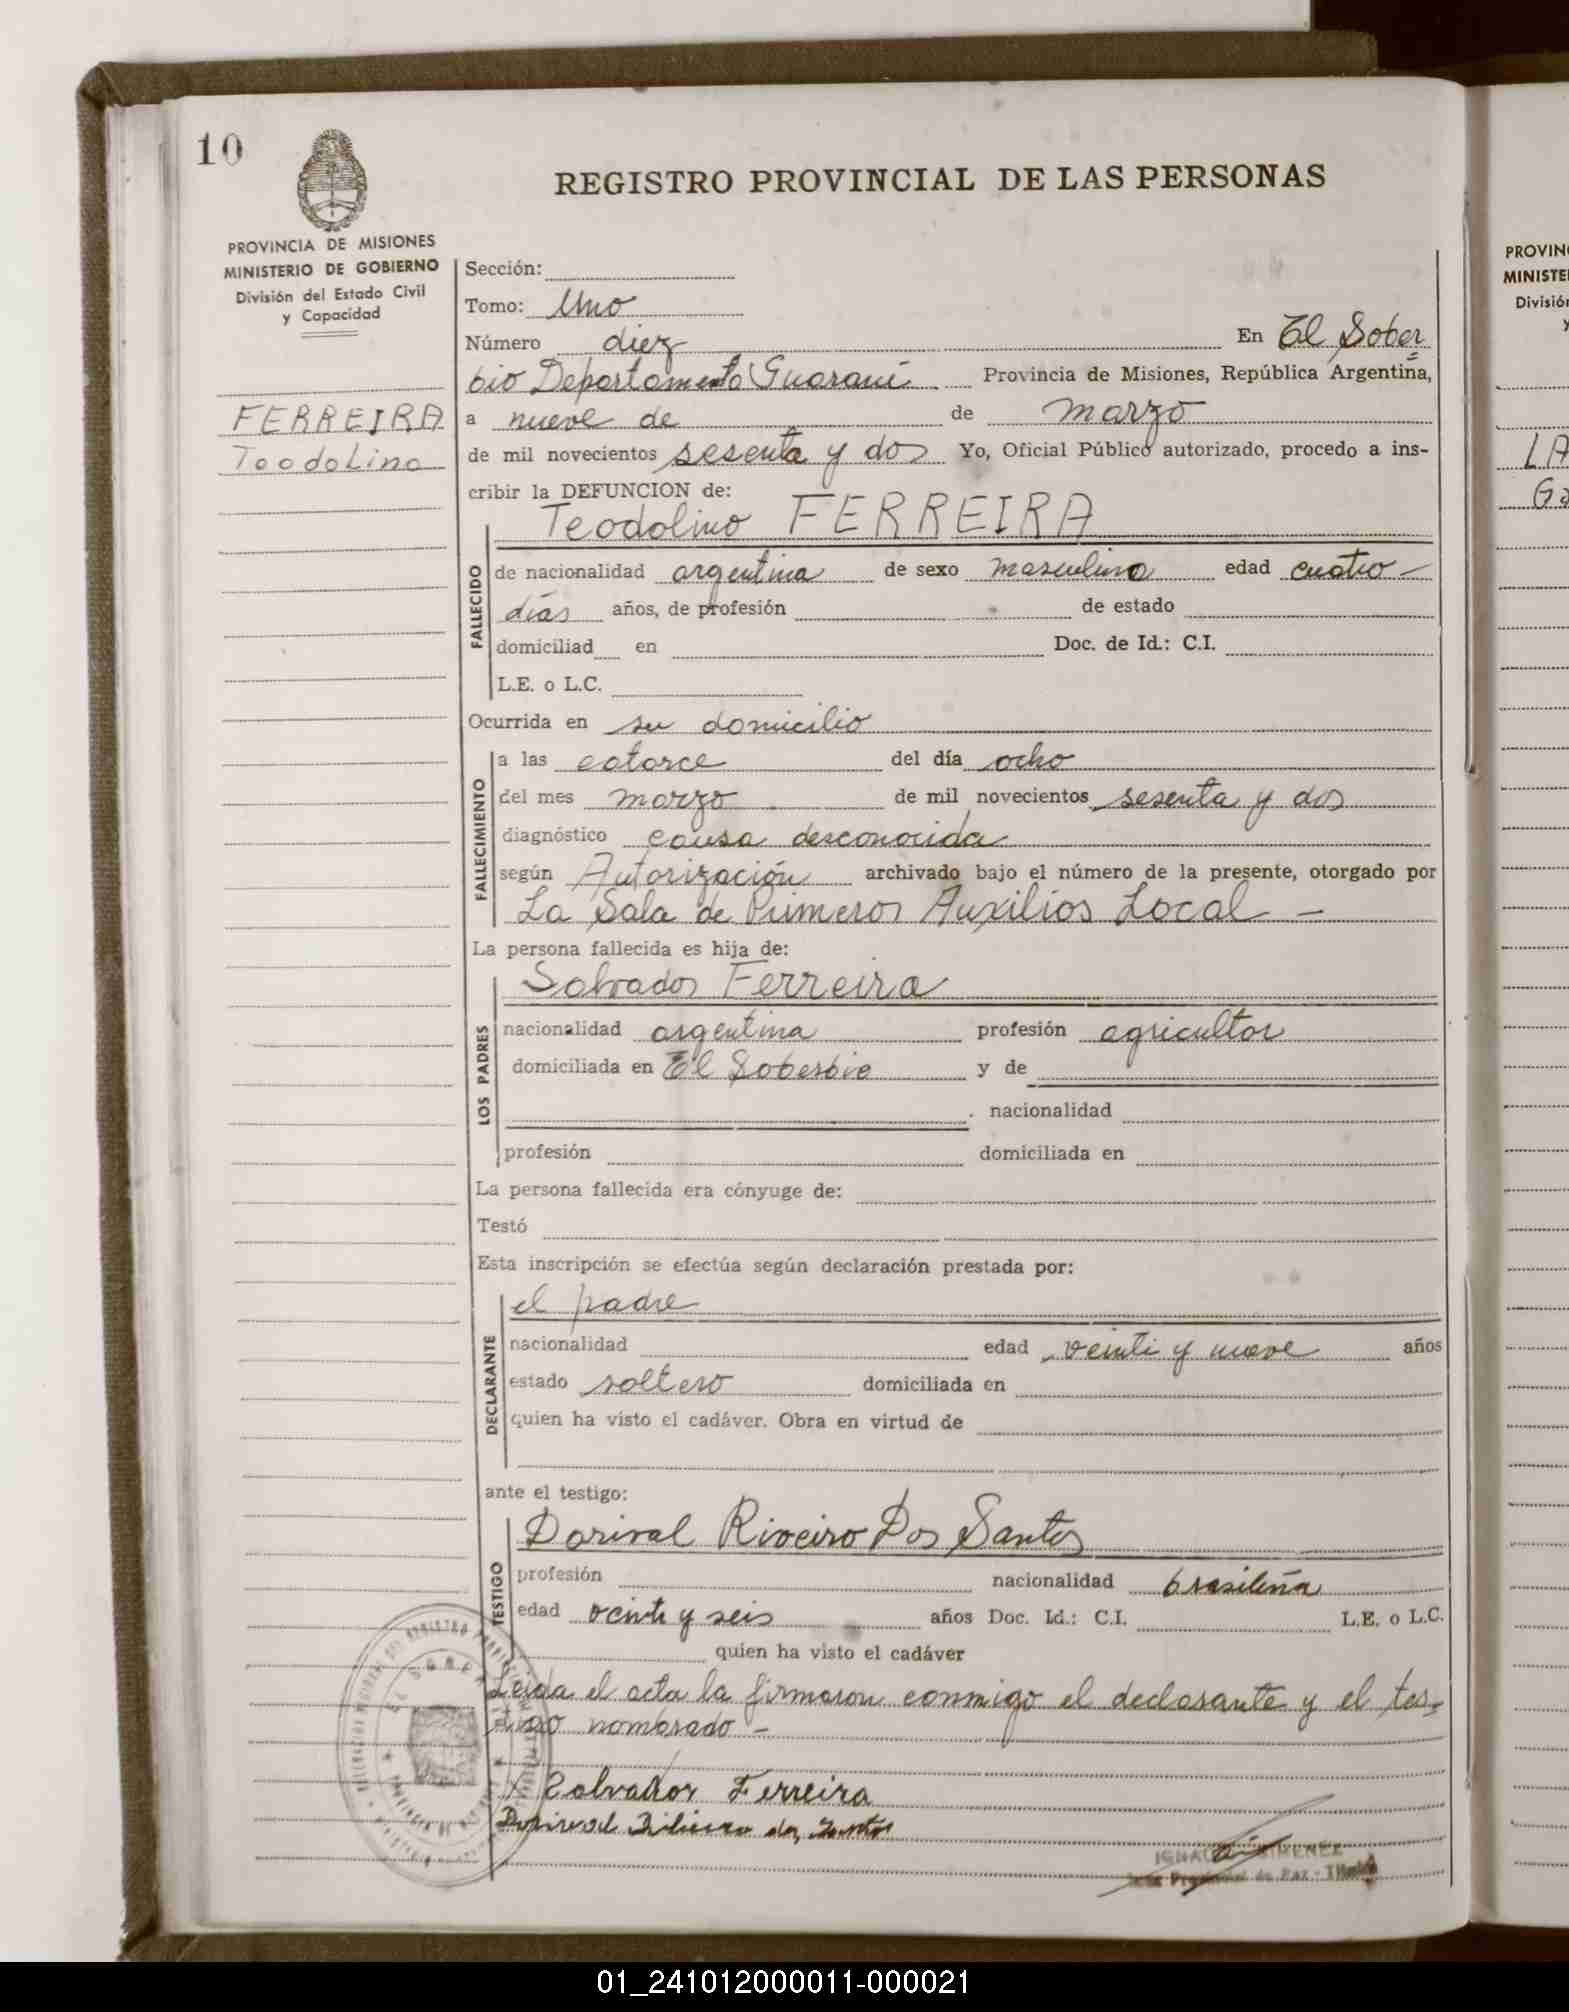 10
REGISTRO PROVINCIAL DE LAS PERSONAS
PROVINCIA DE MISIONES
MINISTERIO DE GOBIERNO
División del Estado Civil
y Capacidad
FERREIRA
Teodolino
Sección:
Tomo: Uno
Número diez En El Sober
bio Departamento Guaraní Provincia de Misiones, República Argentina,
a nueve de de marzo
de mil novecientos sesenta y dos Yo, Oficial Público autorizado, procedo a ins-
cribir la DEFUNCION de:
Teodolino FERREIRA
FALLECIDO
de nacionalidad argentina de sexo masculino edad cuatro -
días años, de profesión de estado
domiciliad en Doc. de Id.: C.I.
L.E. o L.C.
Ocurrida en su domicilio
FALLECIMIENTO
a las catorce del día ocho
del mes marzo de mil novecientos sesenta y dos
diagnóstico causa desconocida
según Autorización archivado bajo el número de la presente, otorgado por
La Sala de Primeros Auxilios Local -
La persona fallecida es hija de:
LOS PADRES
Salvador Ferreira
nacionalidad argentina profesión agricultor
domiciliada en El Soberbio y de
nacionalidad
profesión domiciliada en
La persona fallecida era cónyuge de:
Testó
Esta inscripción se efectúa según declaración prestada por:
DECLARANTE
el padre
nacionalidad edad veinti y nueve años
estado soltero domiciliada en
quien ha visto el cadáver. Obra en virtud de
ante el testigo:
TESTIGO
Dorival Riveiro Dos Santos
profesión nacionalidad brasileña
edad veinti y seis años Doc. Id.: C.I. L.E. o L.C.
quien ha visto el cadáver
Leida el acta la firmaron conmigo el declarante y el tes-
tigo nombrado -
Salvador Ferreira
Dorival dos Santos
PROVIN
MINISTE
Divisió
y
LA
01_241012000011-000021